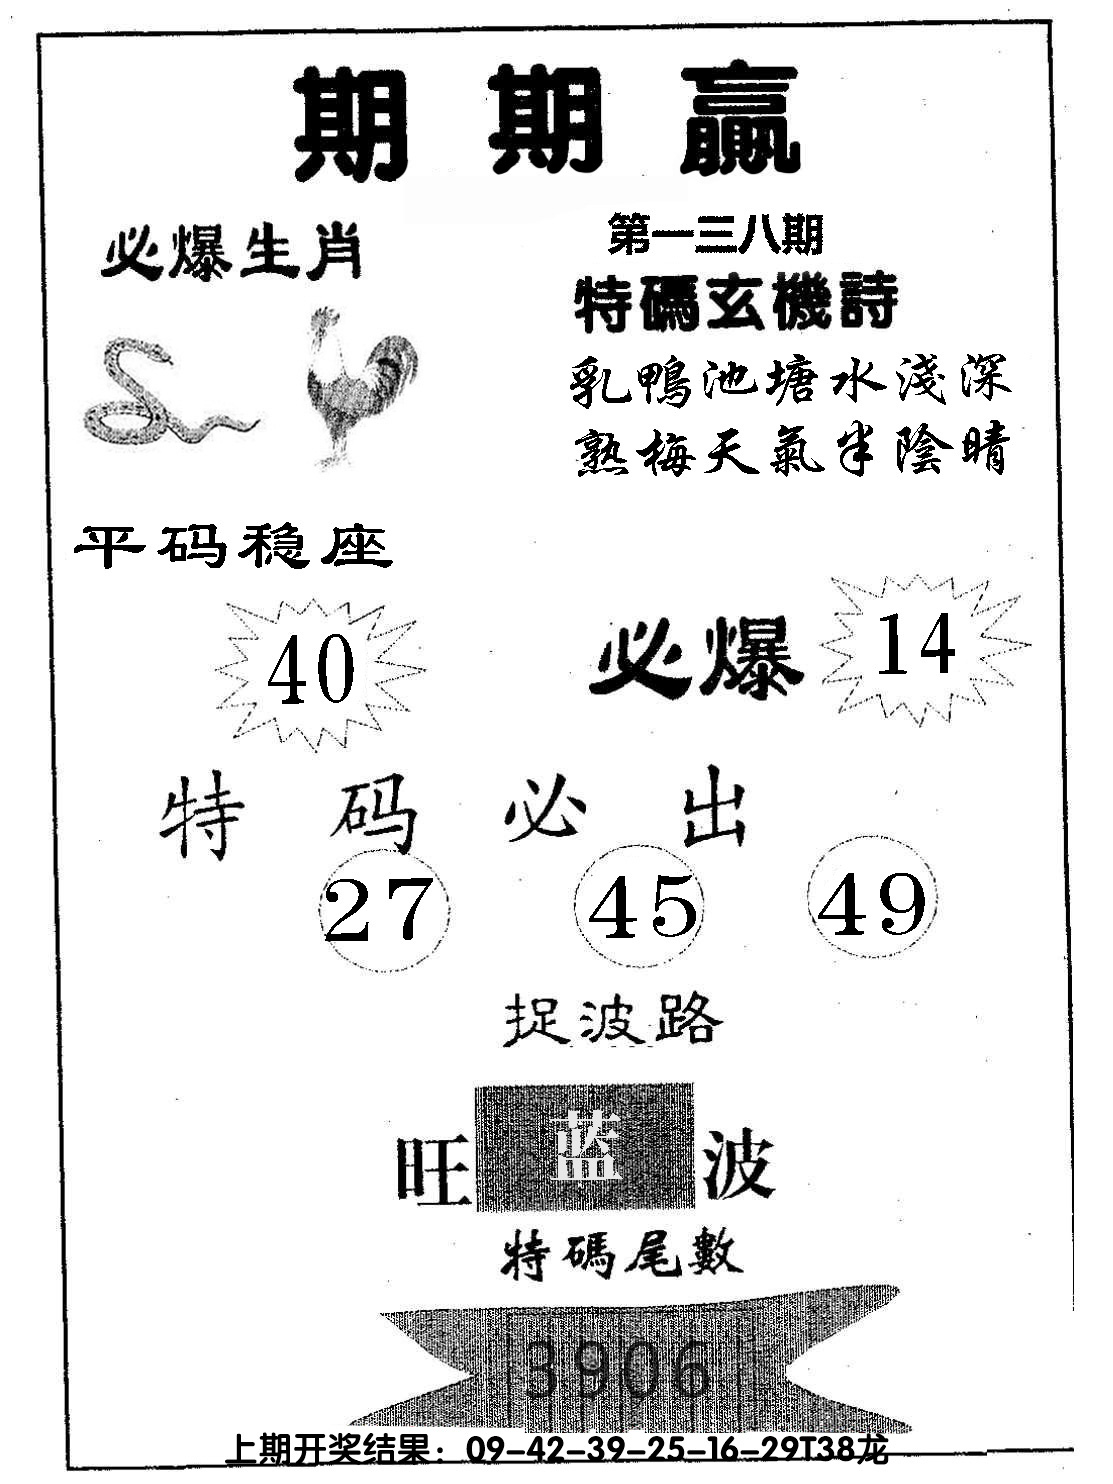 期期贏
必爆生肖
第一三八期
特碼玄機詩
乳鴨池塘水淺深
熟梅天氣半陰晴
平码稳座
40
必爆
14
特码必出
27 45 49
捉波路
旺蓝波
特碼尾數
3906
上期开奖结果：09-42-39-25-16-29T38龙